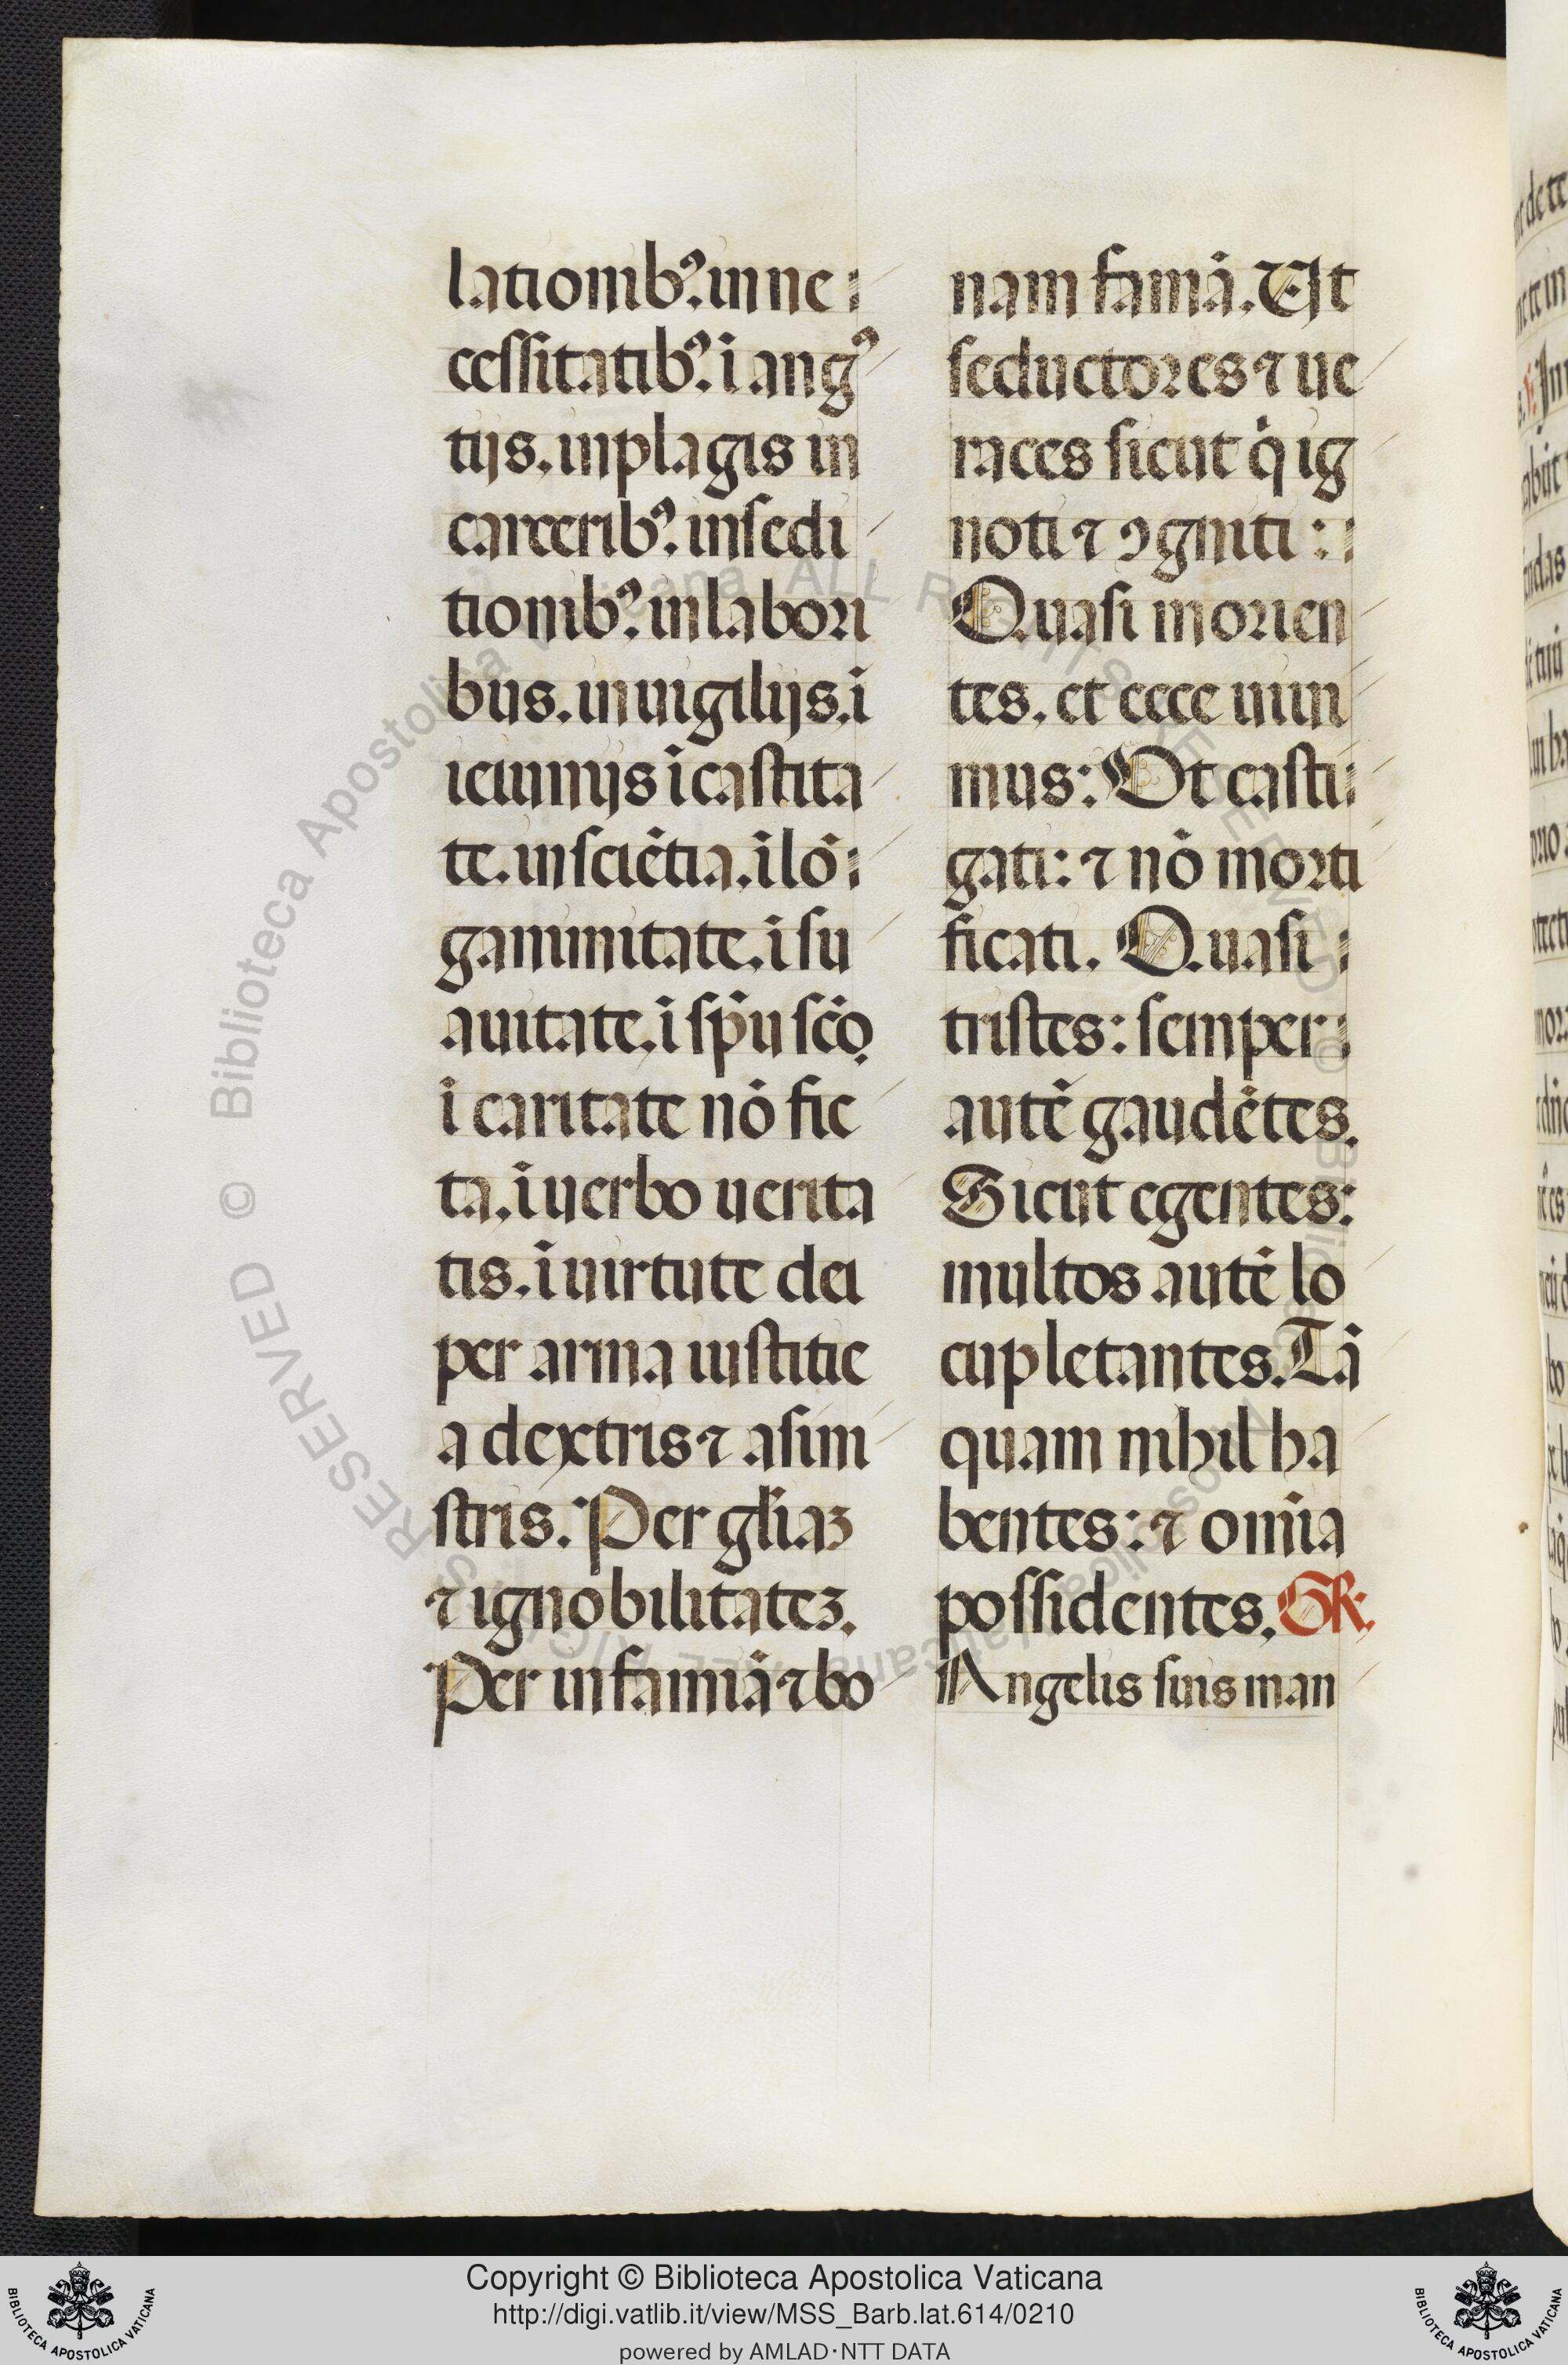 lationibꝰ. in ne
cessitatibꝰ. ī angꝰ
tijs. in plagis in
carceribꝰ. in sedi
tionibꝰ. in labori
bus. in uigilijs. ī
ieiunijs ī castita
te. in sciētia. ī lō
ganimitate. ī su
auitate. ī sp̄u sc̄o.
ī caritate nō fic
ta. ī uerbo uerita
tis. ī uirtute dei
per arma iustitie
a dextris ⁊ a sini
stris. Per gl̄iaꝫ
⁊ ignobilitateꝫ.
Per infamiā ⁊ bo
nam famā. Ut
seductores ⁊ ue
races sicut q̄ ig
noti ⁊ ꝯgniti :
Quasi morien
tes. et ecce uiui
mus: Ut casti
gati: ⁊ nō morti
ficati. Quasi
tristes: semper
autē gaudētes.
Sicut egentes:
multos autē lo
cupletantes. Tā
quam nihil ha
bentes: ⁊ om̄ia
possidentes. GR.
Angelis suis man
© Biblioteca Apostolica Vaticana ALL RIGHTS RESERVED © Biblioteca Apostolica Vaticana ALL RIGHTS RESERVED
Copyright © Biblioteca Apostolica Vaticana
http://digi.vatlib.it/view/MSS_Barb.lat.614/0210
powered by AMLAD·NTT DATA
BIBLIOTECA APOSTOLICA VATICANA
BIBLIOTECA APOSTOLICA VATICANA